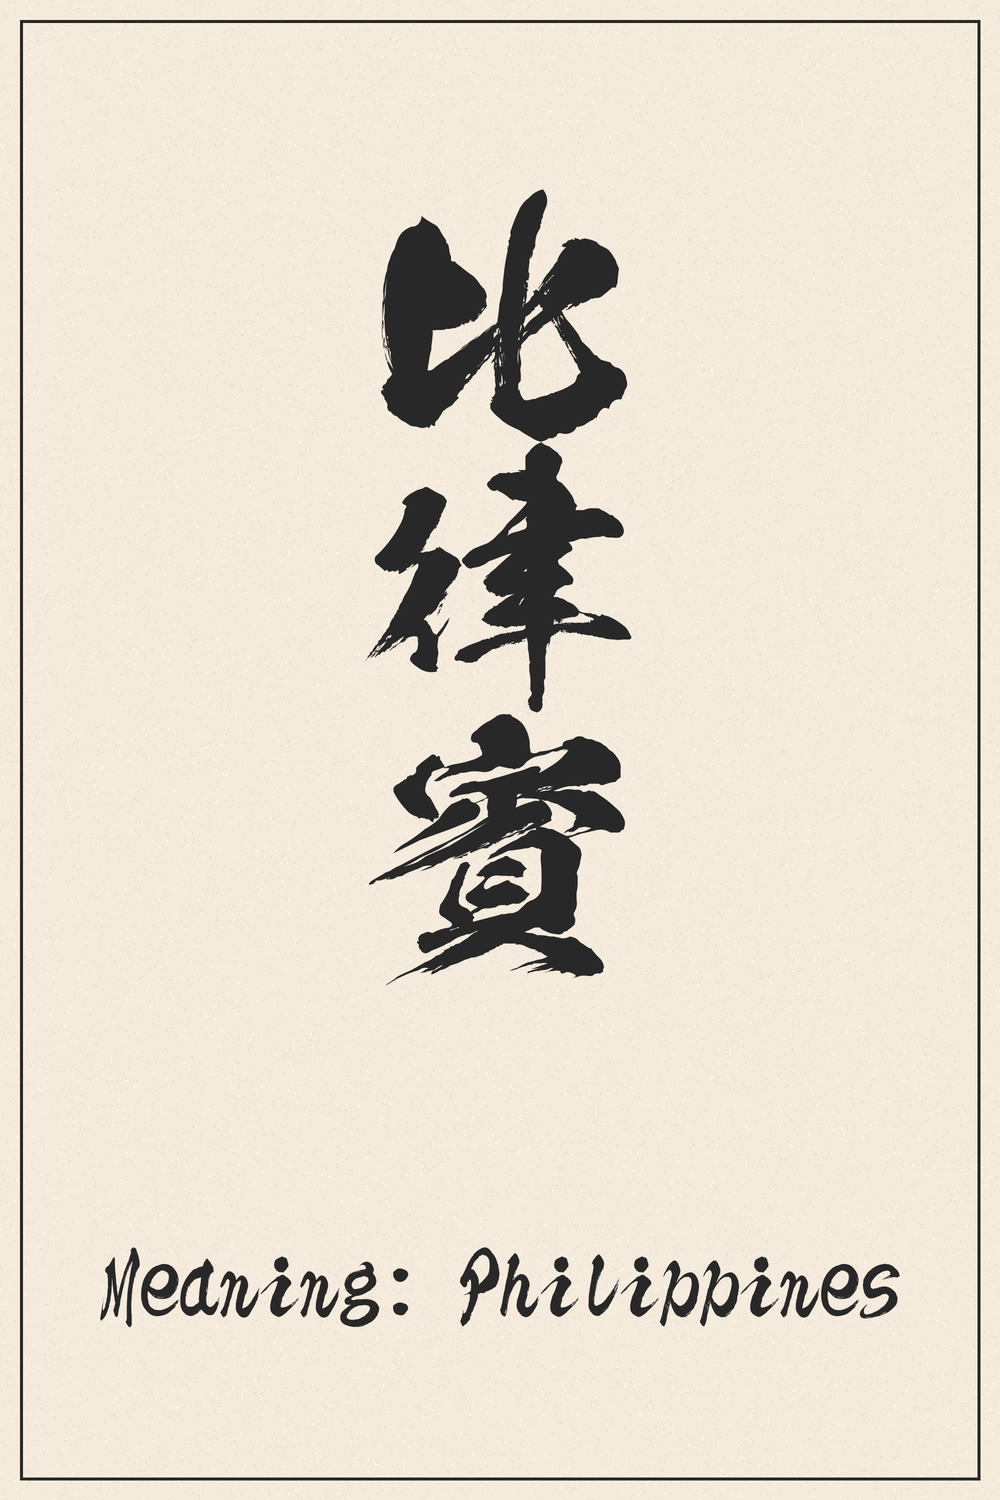 比律賓
Meaning: Philippines